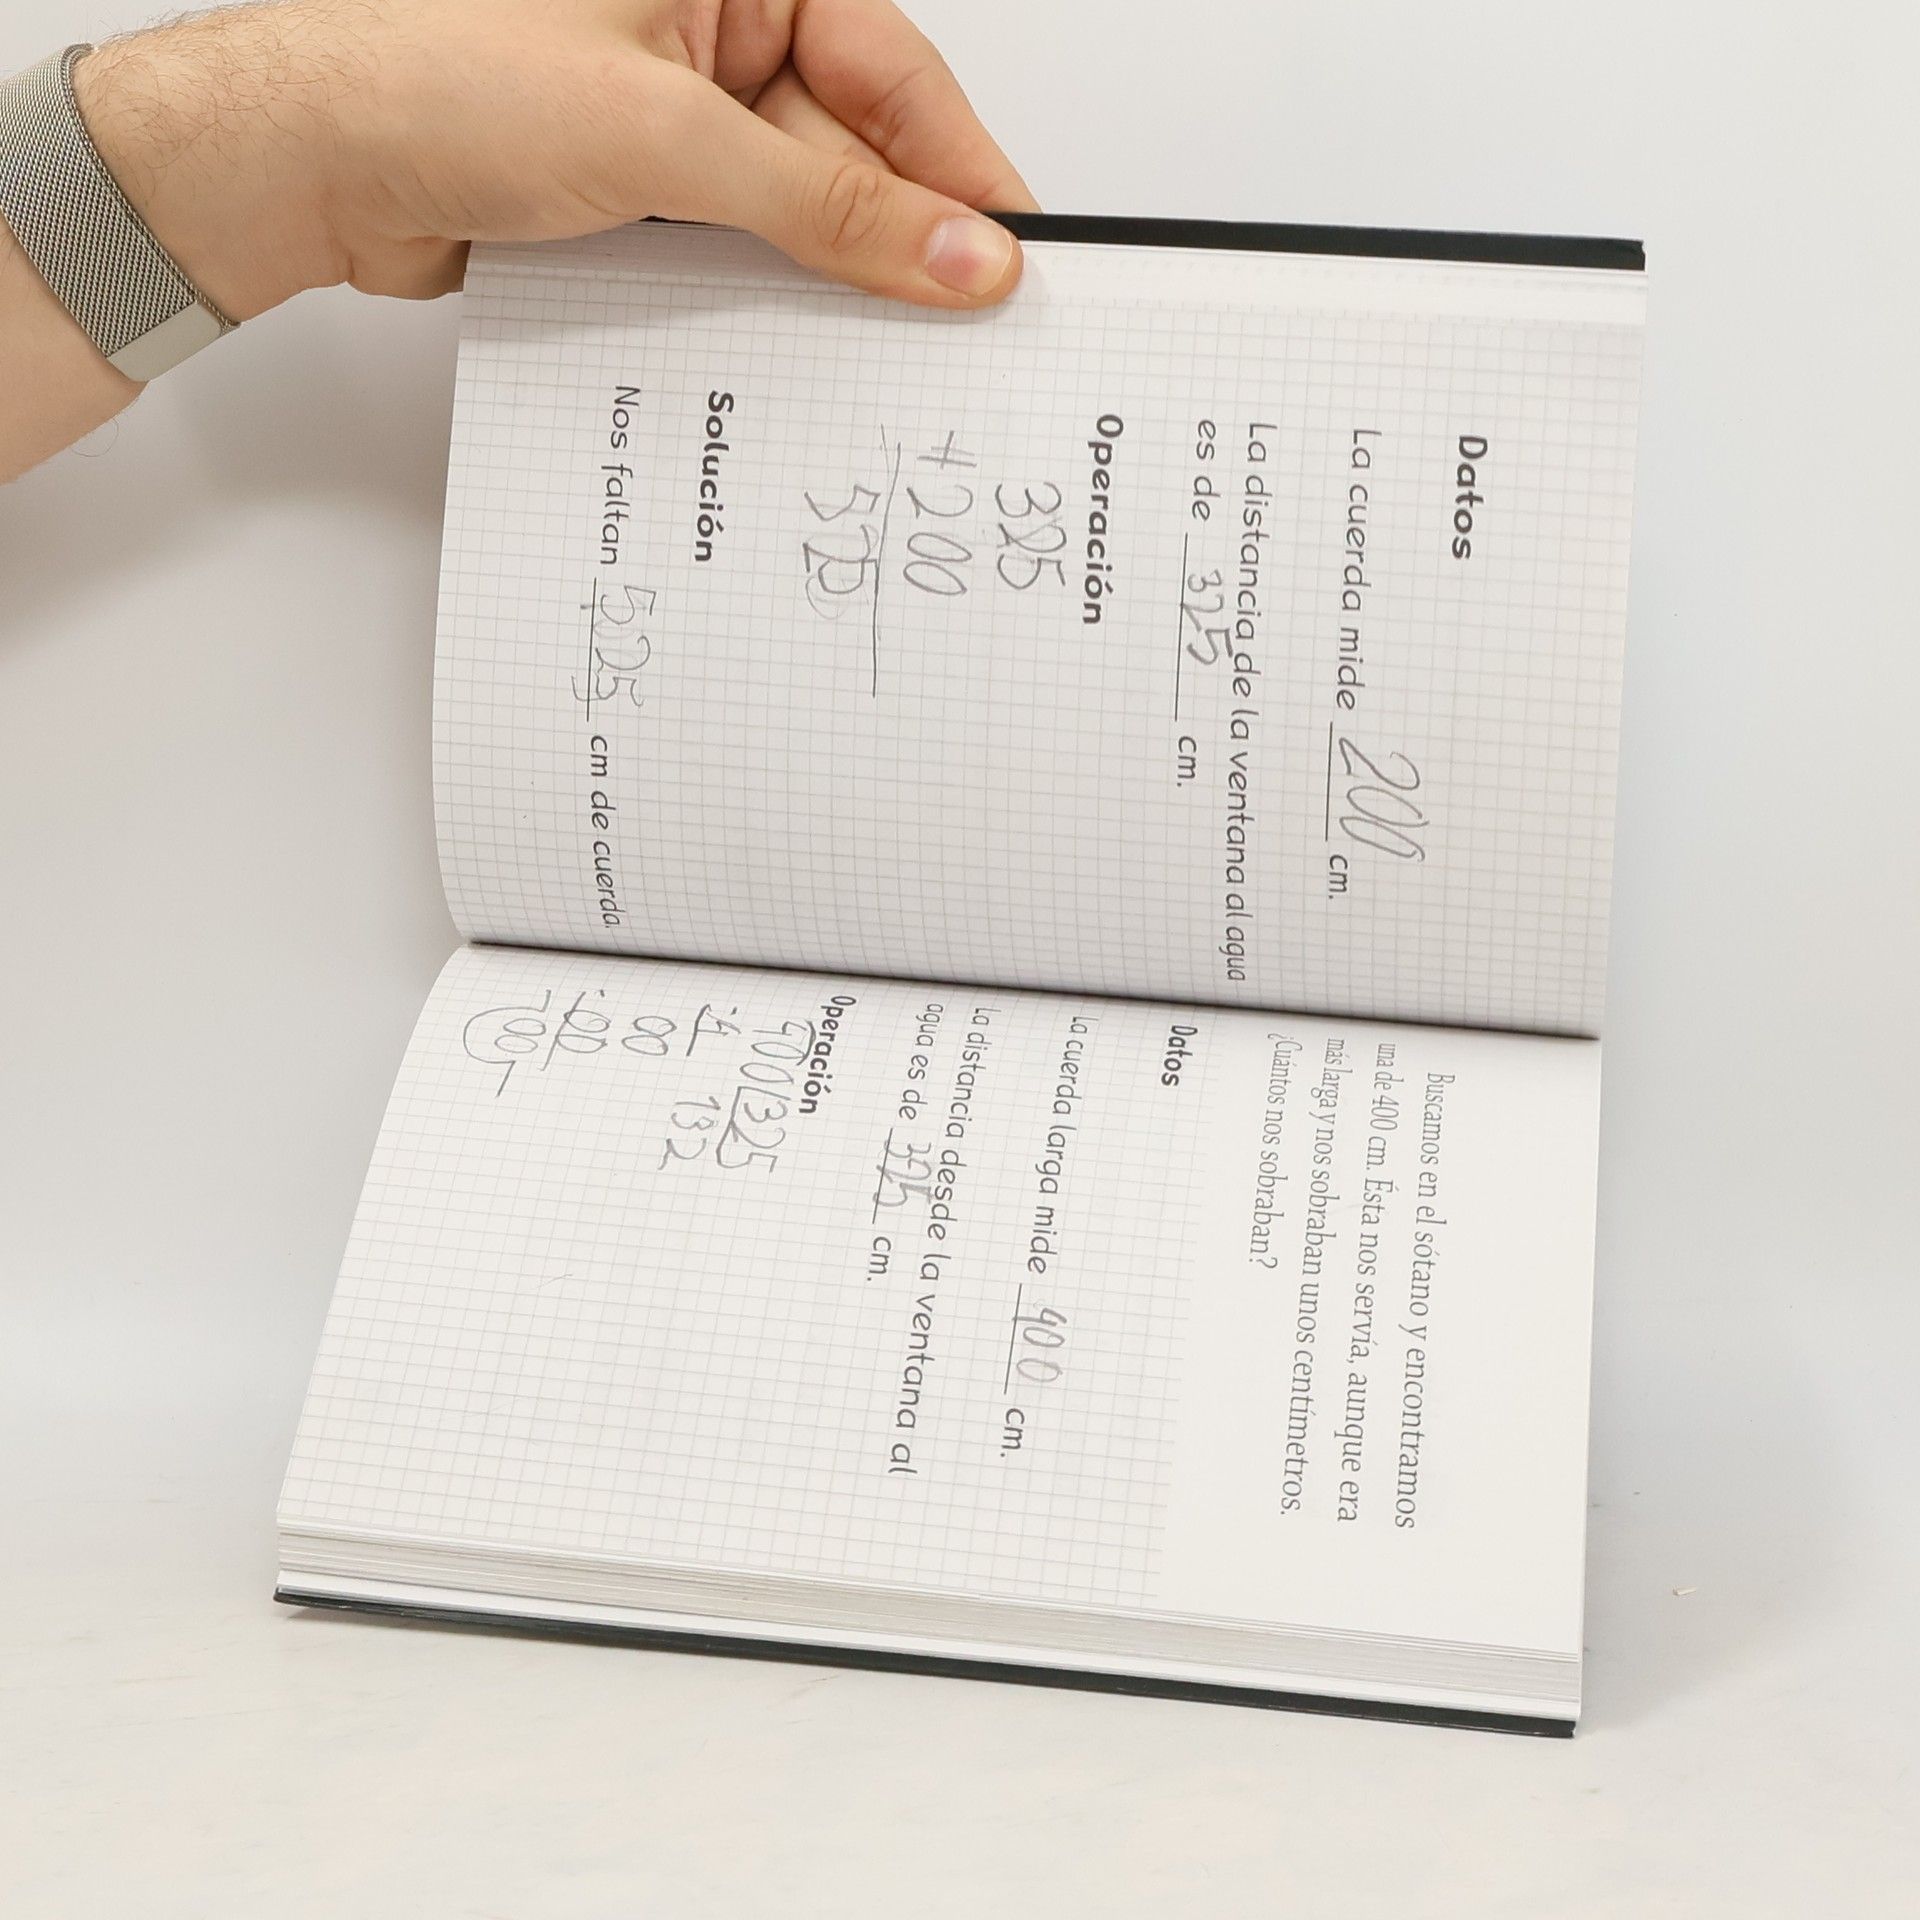 Datos
La cuerda mide 200 cm.
La distancia de la ventana al agua
es de 325 cm.
Operación
325
+ 200
525
Solución
Nos faltan 525 cm de cuerda.
Buscamos en el sótano y encontramos
una de 400 cm. Ésta nos servía, aunque era
más larga y nos sobraban unos centímetros.
¿Cuántos nos sobraban?
Datos
La cuerda larga mide 400 cm.
La distancia desde la ventana al
agua es de 325 cm.
Operación
400 325
132
00
00